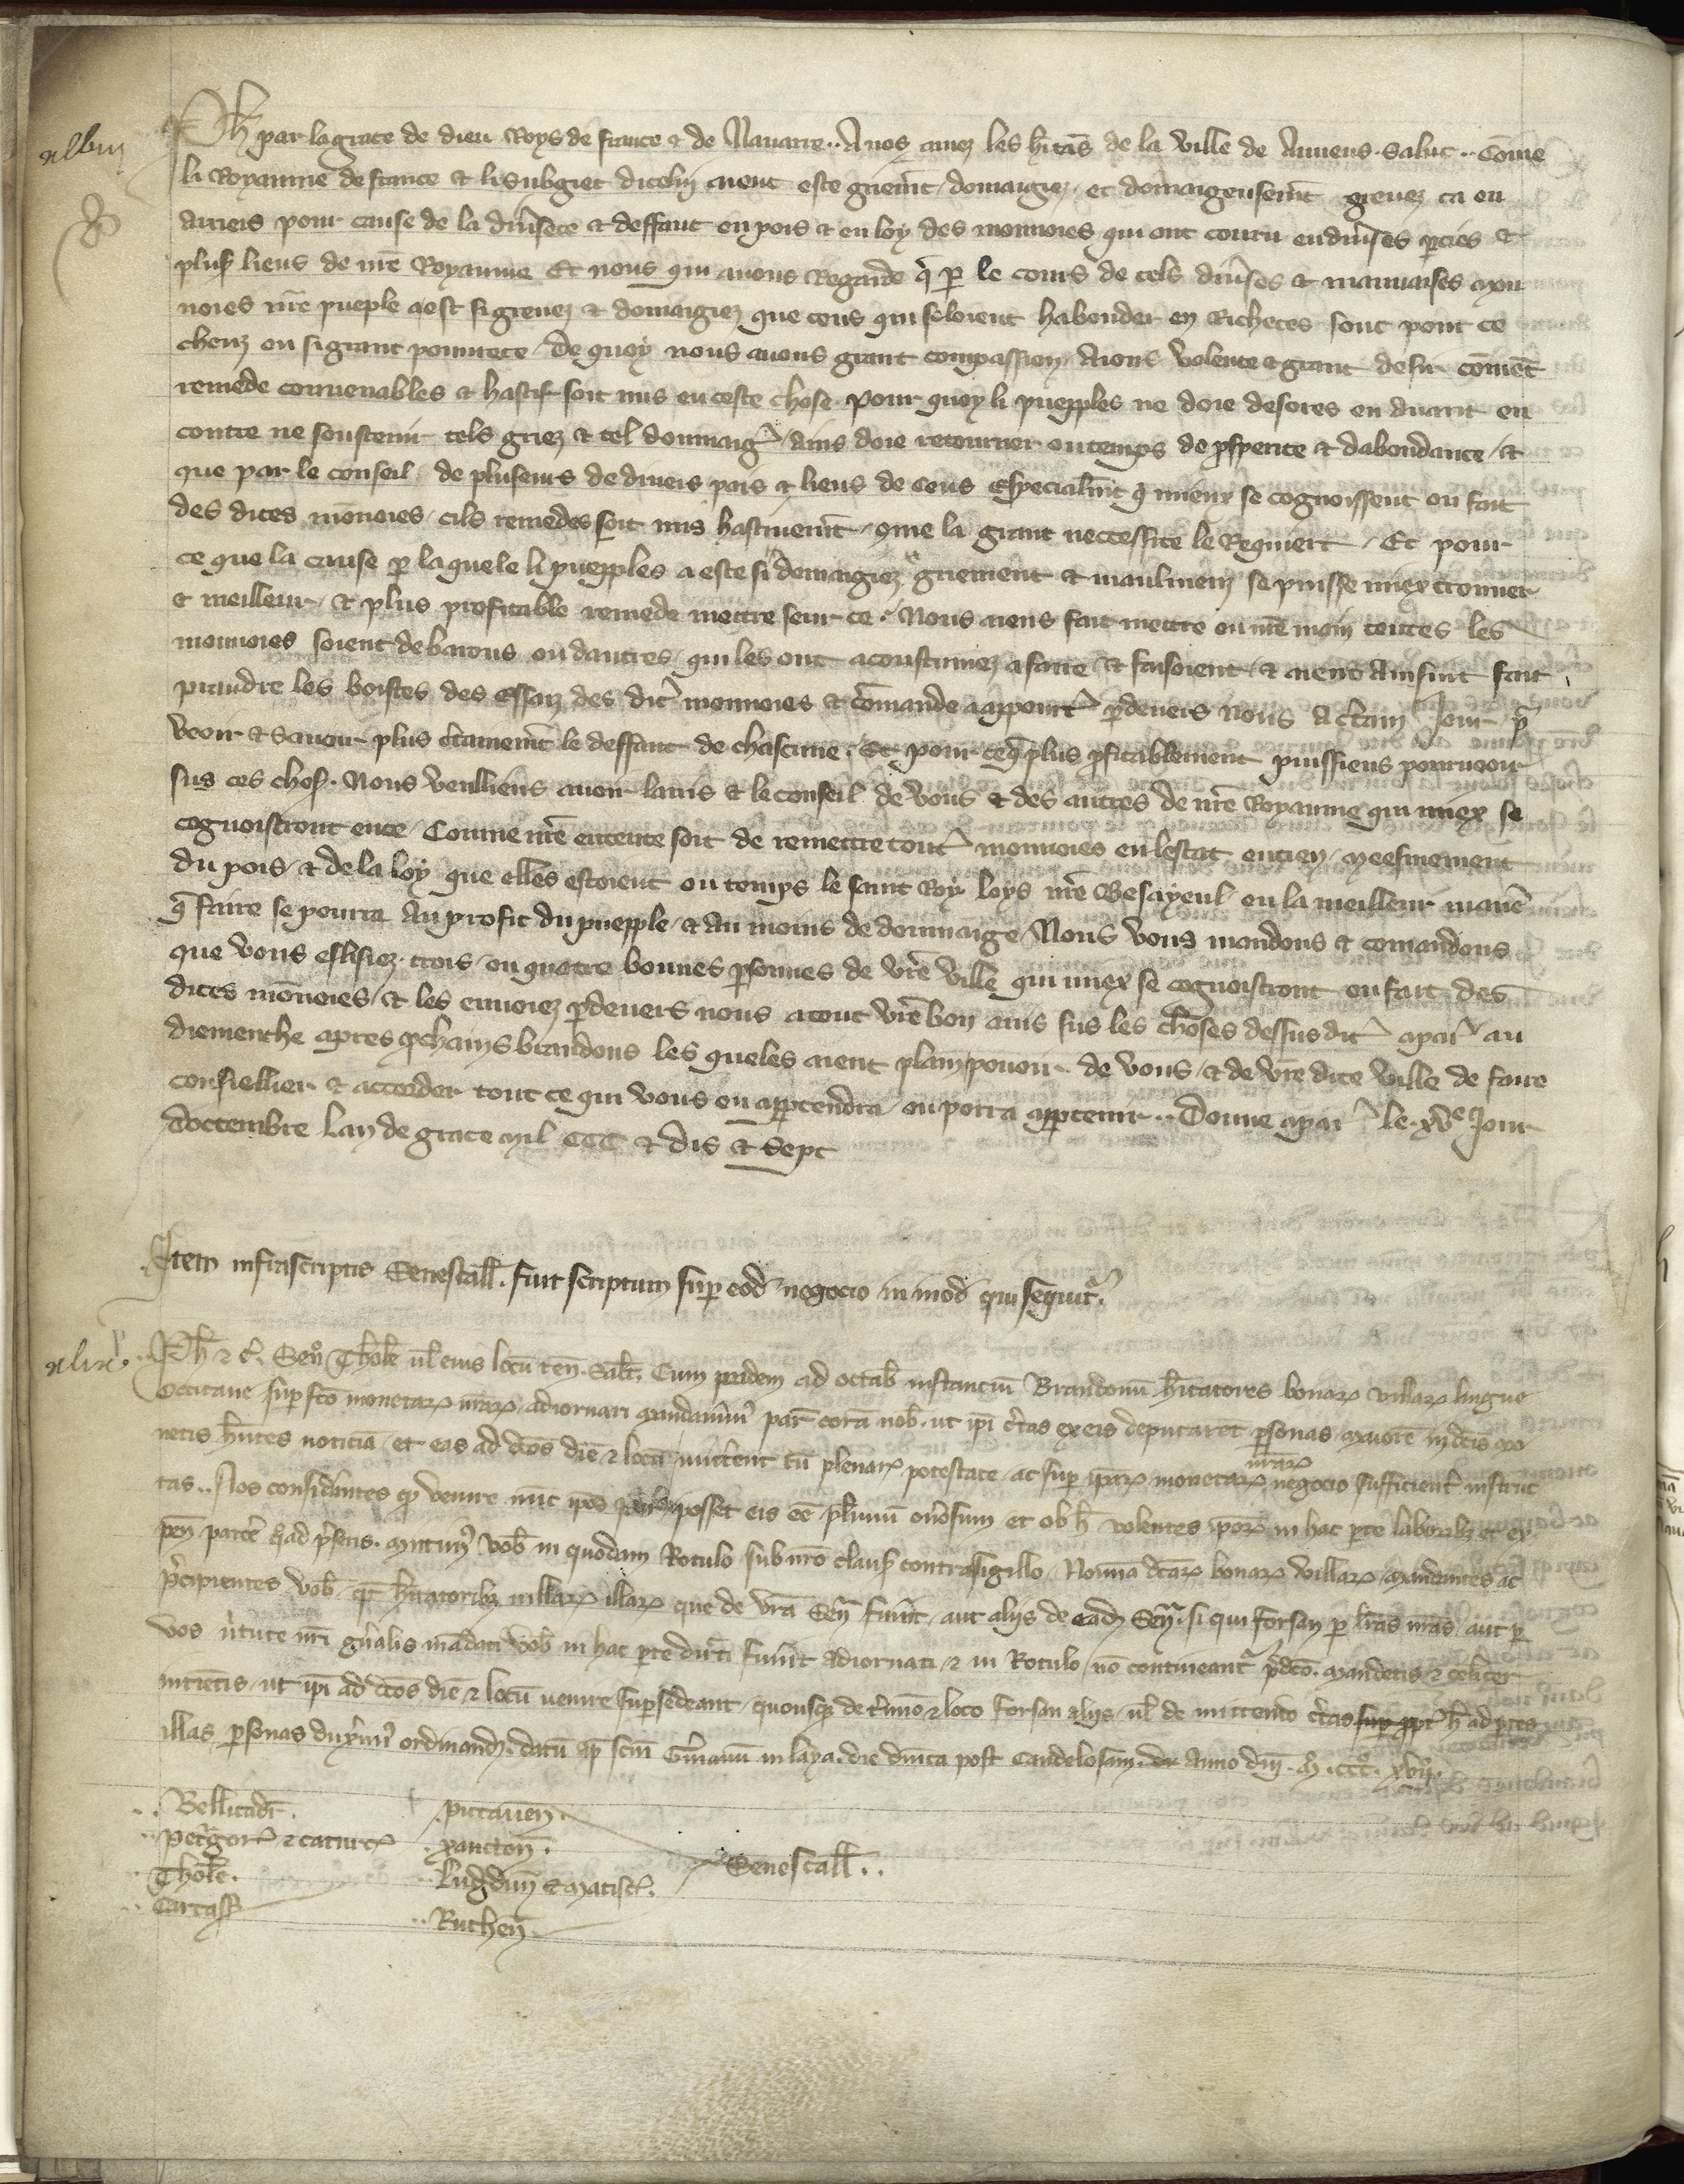 Ph par la grace de dieu Roys de france & de Nauarre .. A nos amez les hītās de la ville de Amiens . salut .. Cōme
li Royaume de france et li subgiet dicelui aient este griemt domaigiez et domaigeusemt greuez ca en
arrieis pour cause de la diũsete et deffaut en pois & en loy des monnoies qui ont couru en diũses pties et
plus lieus de nrē Royaume Et nous qui auons Regarde q̄ p le cours de tels diũses et mauuaises mon
noies nrē pueple a est si greuez & domaigiez que ceus qui soloient habonder en Richeces sont pour ce
cheuz en si grant pourete / de quoy nous auons grant compassion / Aions volente & grant desir cōmēt
remede conuenables & hastif soit mis en ceste chose . pour quoy li puepples ne doie desores en auant en
contre ne soustenir tels griez & tel dommaig / ains doie retourner ou temps de psperite & dabondance / &
que par le conseil de pluseurs de diuers pais & lieus de ceus especialmt q̄ mieux se cognoissent ou fait
des dites mōnoies / cils remedes soit mis hastiuemt / ōme la grant neccessite le Requiert / Et pour
ce que la cause p la quele li puepples a este si domaigiez griement & maulmenez se puisse miex trouuer
& meilleur / & plus profitable remede mettre seur ce / Nous aiens fait mettre en nrē main toutes les
monnoies soient de barons ou dautres / qui les ont acoustumez a faire & faisoient / & aiens Ainsint fait
prandre les boistes des essaiz des dit monnoies & cōmande a appourt pdeuers nous A ctain Jour / p
veoir & sauoir plus ctainemt le deffaut de chascune / Et pour ce q̄ plus pfitablement puissiens pourueoir
sus ces chos . Nous veulliens auoir lauis & le conseil de vous & des autres de nrē Royaume qui miex se
cognoistront en ce / Comme nrē entente soit de remettre tout monnoies en lestat encien / meesmement
du pois / & de la loy que elles estoient ou temps le saint Roy loys nrē Besayeul / en la meilleur maniē
q̄ faire se pourra Au profit du puepple / & au moins de dommaige / Nous vous mandons & comandons
que vous eslisiez trois / ou quatre bonnes psonnes de vrē ville qui miex se cognoistront ou fait des
dites mōnoies / & les enuoiez pdeuers nous a tout vrē bon auis sus les choses dessus dit a par au
diemenche apres pchains brandons les queles aient plain pouoir de vous / & de vrē dite ville de faire
conseillier & accorder tout ce qui vous en apptendra / ou porra apptenir .. Donne a par le . xvᵉ Jour
doctembre Lan de grace mil CCC & dis & Sept
Item infrascriptis Senescall . fuit scriptum sup eod negocio in mod qui sequit .
Ph & c̃ . Seno Tholẽ ul eius locũ teñ . Salt . Cum pridem ad octab instanciũ Brandonũ hĩtatores bonar villar lingue
Occitane sup fcō monetar nrar adiornari mandauim par corā nob . ut ipi ctas ex eis deputaret psonas maiorẽ in dcis mo
netis hñtes noticiā / et eas ad dcōs diē & locū mittent cū plenar potestate / ac sup ipar monetar nrar negocio sufficient instruc
tas .. Nos considãntes qp venire nūc ipōs posset eis eē plimū onosum et ob h volentes ipor in hac pte laborib et ex
pen parcẽ q̃ ad psens . Mittim vob in quodam Rotulo sub nrō claus contrasigillo / Nomīa dcar bonar villar / mandantes ac
pcipientes vob / qt hĩtatorib uillar illar que de vra Señ fuñt / aut alijs de ead Señ . si qui forsan p lrās nrās / aut p
vos vtute nrī gñalis mādati vob in hac pte dircti fuñt adiornati / & in Rotulo nō contineant pdcō . mandetis & celiter
intietis / ut ipi ad dcōs diē & locū venire supsedeant / quousq de tmīo & loco forsan alijs / ul de mittendo ctas h ad ptes
illas psonas duxim ordinand . datū ap scm Gmanū in laya . die dnīca post candelosam . Anno dnī . M . CCC . xvij .
.. Bellicadr .
.. Petgor & caturc
.. Tholē .
.. Carcass
.. pictauen .
.. xancton .
.. Lugdun & matisc .
.. Ruthen .
Senescall ..